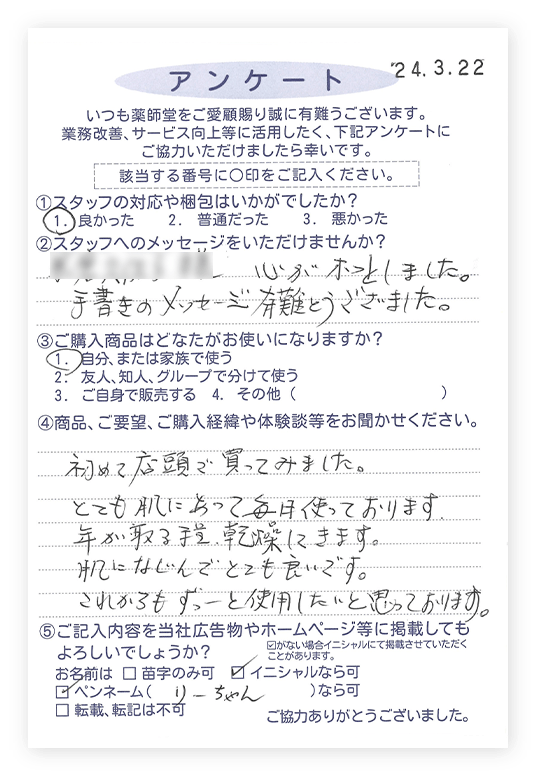 アンケート
'24.3.22
いつも薬師堂をご愛顧賜り誠に有難うございます。
業務改善、サービス向上等に活用したく、下記アンケートに
ご協力いただけましたら幸いです。
該当する番号に〇印をご記入ください。
①スタッフの対応や梱包はいかがでしたか?
1. 良かった 2. 普通だった 3. 悪かった
②スタッフへのメッセージをいただけませんか?
心がホッとしました。
手書きのメッセージ有難とうございました。
③ご購入商品はどなたがお使いになりますか?
1. 自分、または家族で使う
2. 友人、知人、グループで分けて使う
3. ご自身で販売する 4. その他 ( )
④商品、ご要望、ご購入経緯や体験談等をお聞かせください。
初めて店頭で買ってみました。
とても肌にあって毎日使っております.
年が取る程、乾燥してきます。
肌になじんでとても良いです。
これからもずっーと使用したいと思っております。
⑤ご記入内容を当社広告物やホームページ等に掲載しても
よろしいでしょうか?
☑がない場合イニシャルにて掲載させていただく
ことがあります。
お名前は □ 苗字のみ可 ☑ イニシャルなら可
☑ ペンネーム( りーちゃん )なら可
□ 転載、転記は不可
ご協力ありがとうございました。